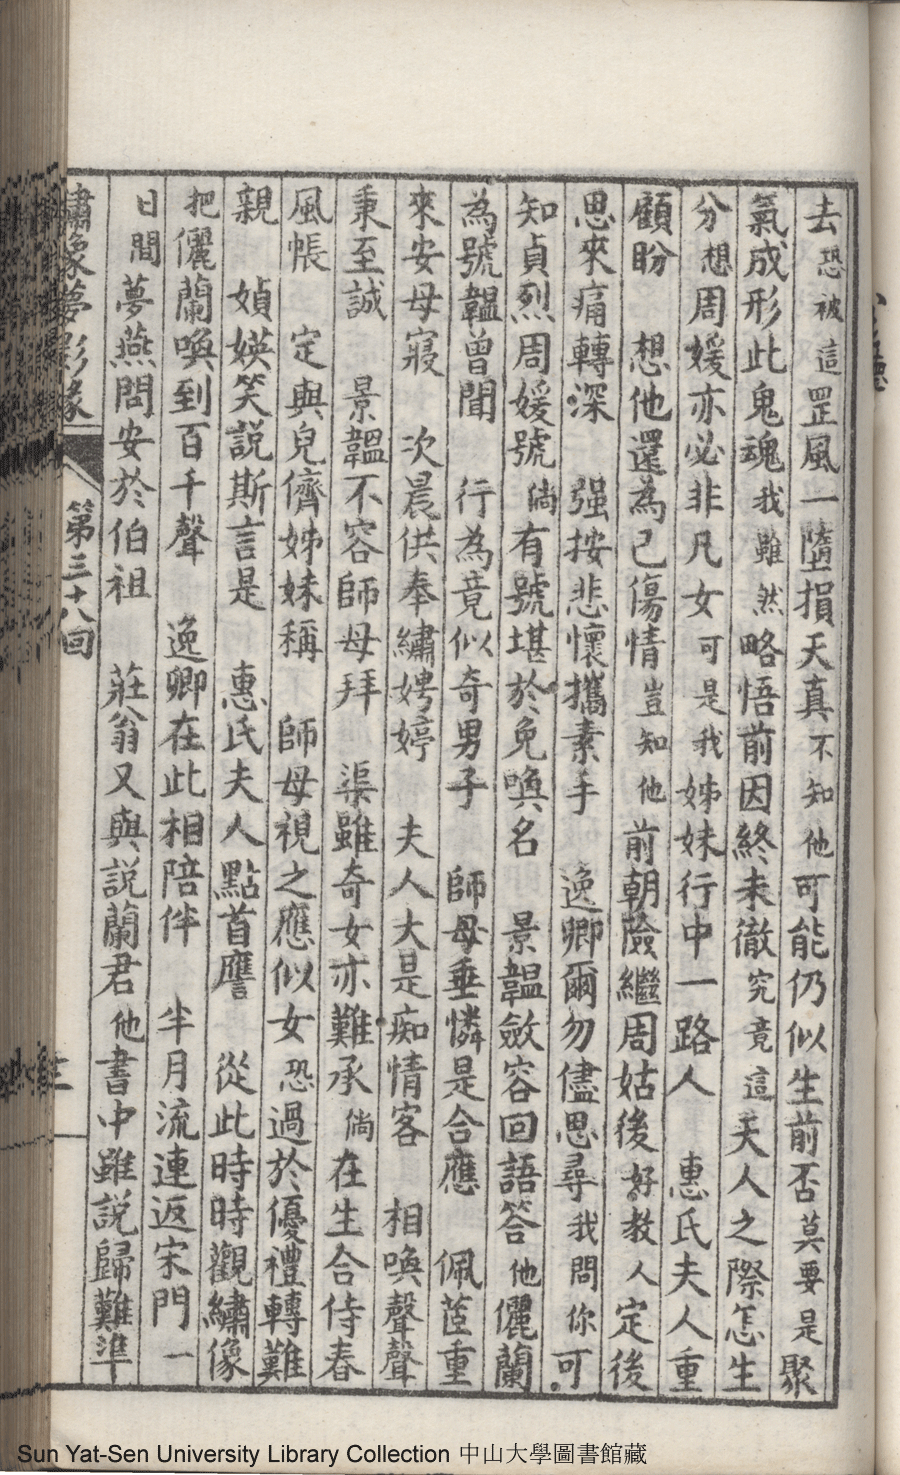 去恐被這罡風一墮損天真不知他可能仍似生前否莫要是聚
氣成形此鬼魂我雖然略悟前因終未徹究竟這天人之際怎生
分想周媛亦必非凡女可是我姊妹行中一路人　惠氏夫人重
顧盼　想他還為己傷情豈知他前朝險繼周姑後好教人定後
思來痛轉深　强按悲懷攜素手　逸卿爾勿儘思尋我問你可
知貞烈周媛號　倘有號堪於免喚名　景韞斂容回語答他儷蘭
為號韞曾聞　行為竟似奇男子　師母垂憐是合應　佩茝重
來安母寢　次晨供奉繡娉婷　夫人大是痴情客　相喚聲聲
秉至誠　景韞不容師母拜　渠雖奇女亦難承倘在生合侍春
風帳　定與兒儕姊妹稱　師母視之應似女恐過於優禮轉難
親　媜媖笑説斯言是　惠氏夫人點首譍　從此時時觀繡像
把儷蘭喚到百千聲　逸卿在此相陪伴　半月流連返宋門　一
日間夢燕問安於伯祖　莊翁又與説蘭君他書中雖説歸難準
繡像夢影緣
第三十八回